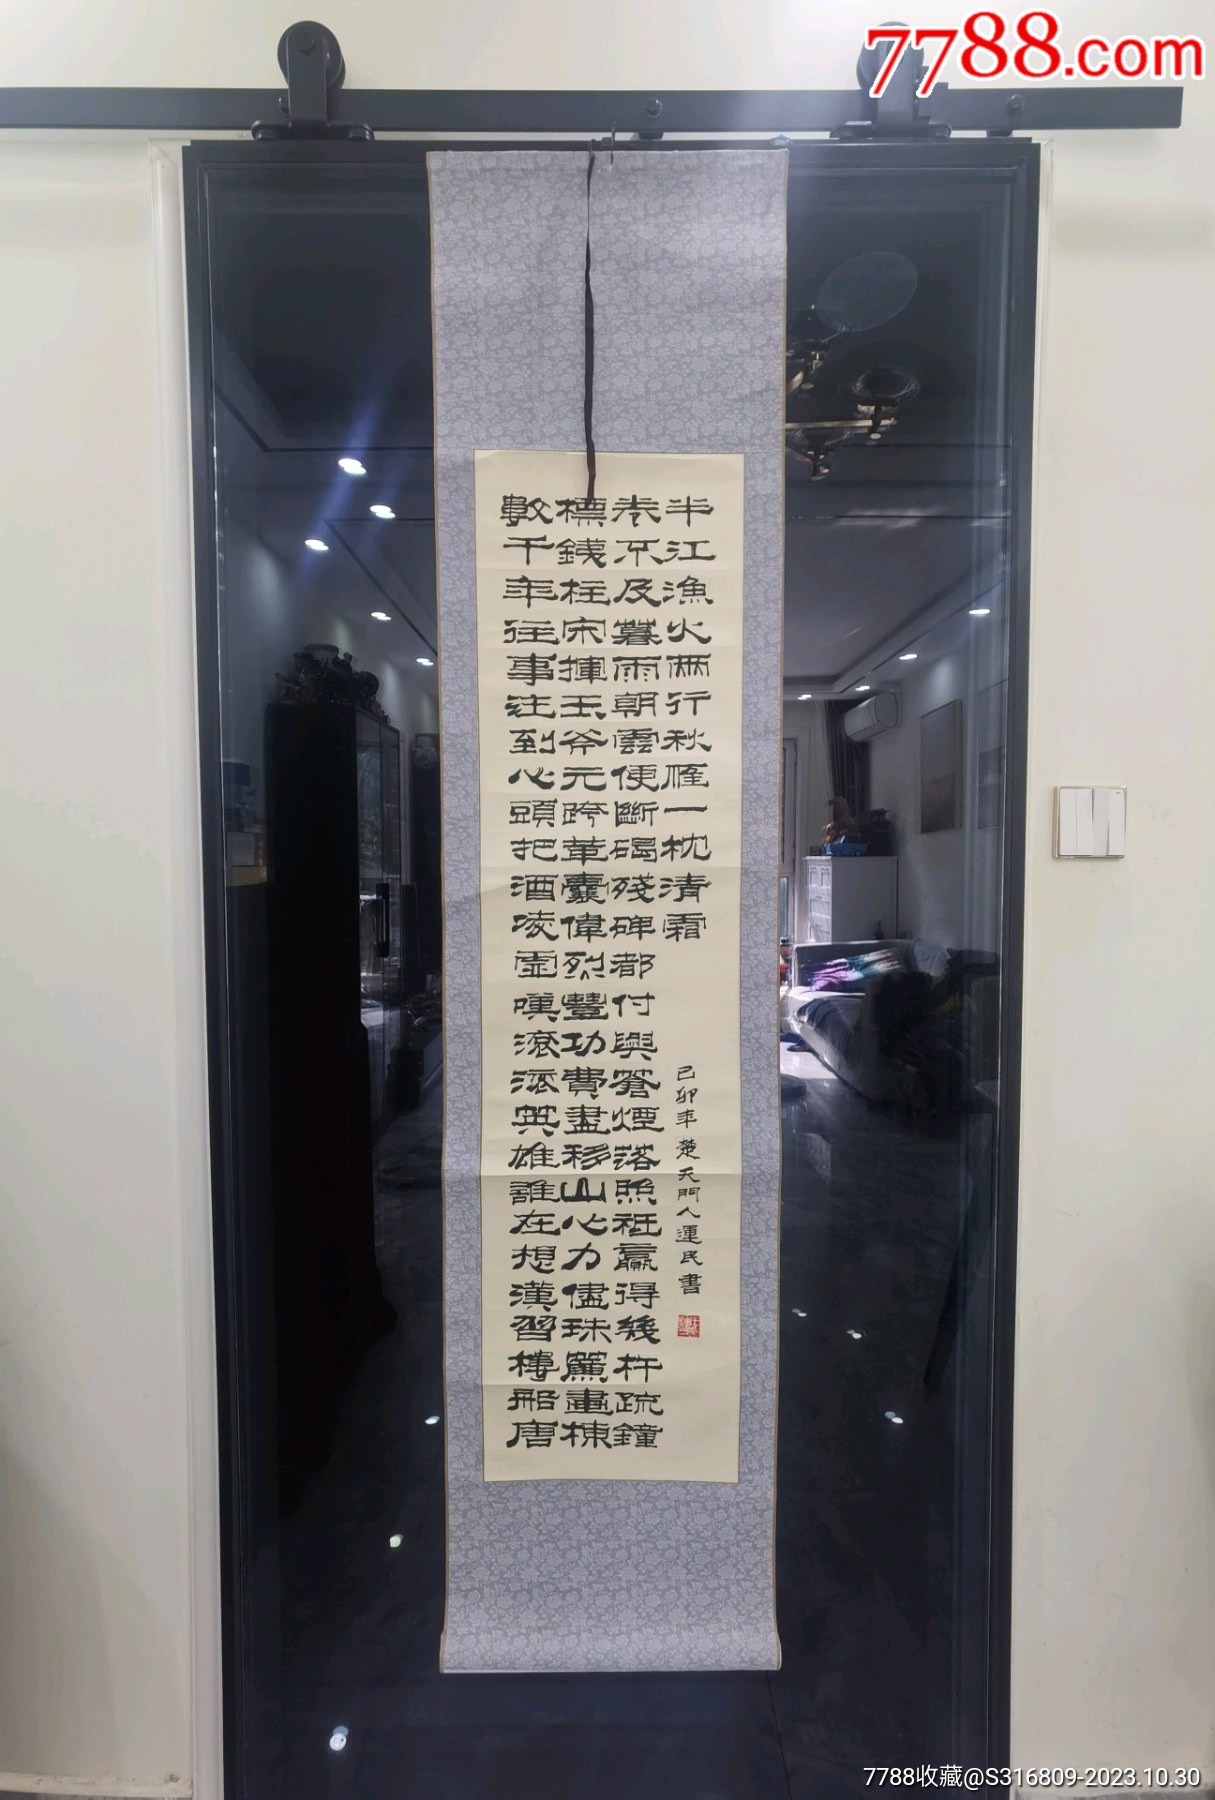 7788.com
數千年往事注到心頭把酒凌虛嘆滾滾英雄誰在想漢習樓船唐
標鐵柱宋揮玉斧元跨革囊偉烈豐功費盡移山心力儘珠簾畫棟
卷不及暮雨朝雲便斷碣殘碑都付與蒼煙落照祗贏得幾杵疏鐘
半江漁火兩行秋雁一枕清霜
己卯年楚天門人運民書
7788收藏@S316809-2023.10.30